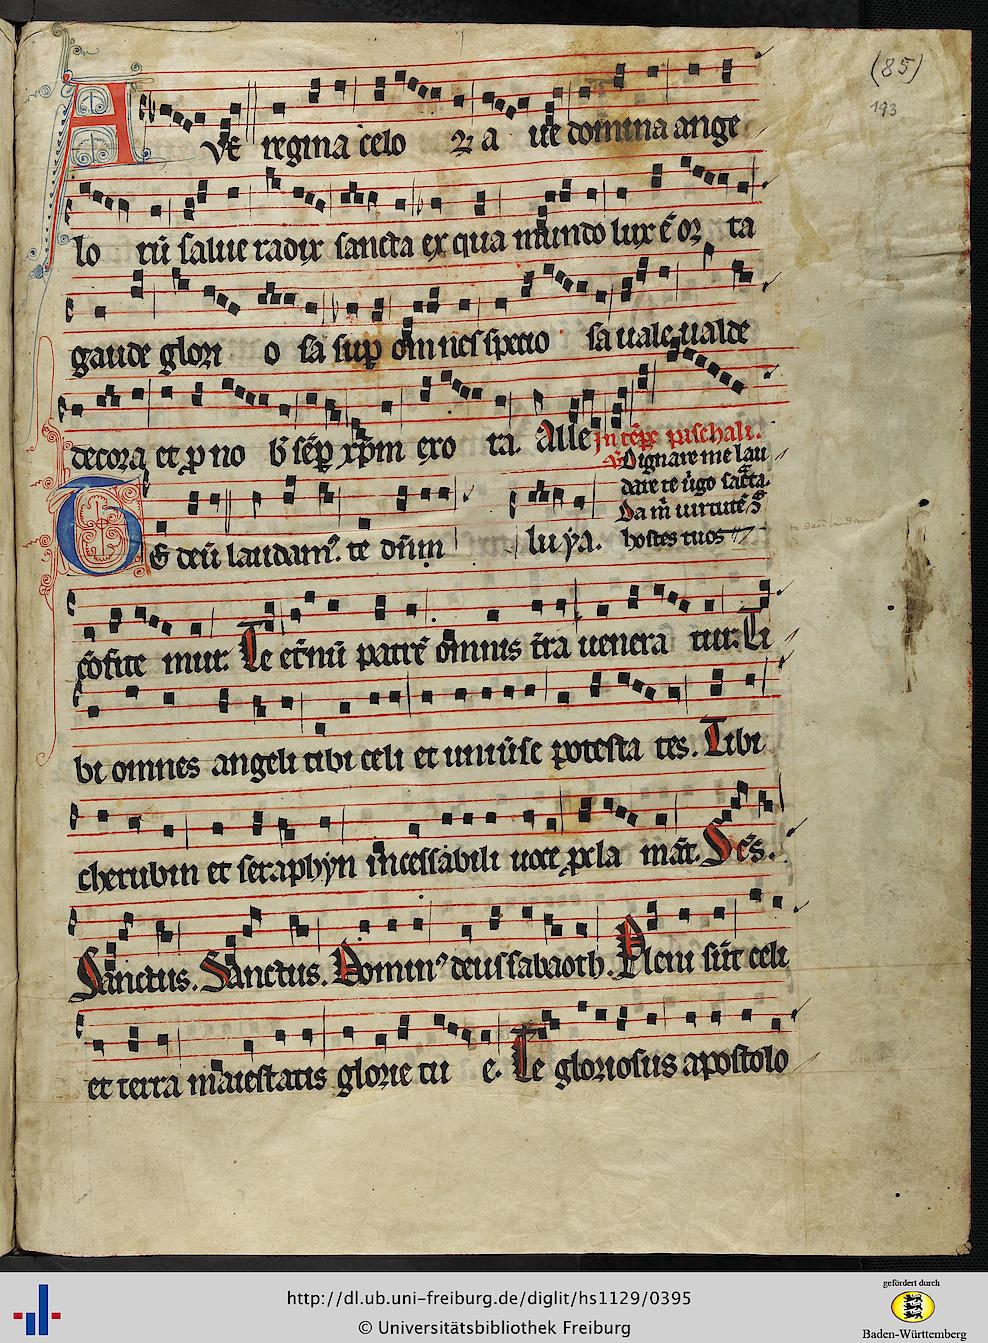 (85)
193
AVE regina celo ꝝ a ue domina ange
lo rū salue radix sancta ex qua mundo lux ē oꝛ ta
gaude glori o sa suꝑ omnes specio sa uale ualde
decora et ꝓ no b̄ sēꝑ xp̄m exo ra. Alle In tēpe paschali.
℣ Dignare me lau
dare te ūgo sac̄ta.
Da m̄ uirtutē ꝯ̄
TE deū laudamꝰ. te dn̄m lu ya. hostes tuos
ꝯ̄fite mur. Te et̄nū patrē omnis t̄ra uenera tur. Ti
bi omnes angeli tibi celi et uniūse potesta tes. Tibi
cherubin et seraphyn incessabili uoce ꝓcla māt. Sc̄s.
Sanctus. Sanctus. Dominꝰ deus sabaoth. Pleni sūt celi
et terra maiestatis glorie tu e. Te gloriosus apostolo
http://dl.ub.uni-freiburg.de/diglit/hs1129/0395
© Universitätsbibliothek Freiburg
gefördert durch
Baden-Württemberg